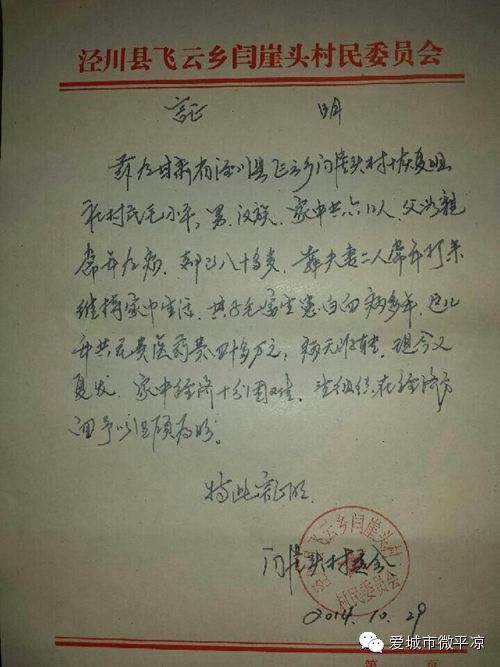 泾川县飞云乡闫崖头村民委员会
证 明
兹有甘肃省泾川县飞云乡闫崖头村
社村民毛小平，男，汉族，家中共六口人，父母亲
常年有病，都已八十多岁，靠夫妻二人常年打工来
维持家中生活，其子毛 患白血病多年，近几
年共花费医药费四十多万元，病无好转，现今又
复发，家中经济十分困难，望组织在经济方
面予以照顾为盼。
特此证明
闫崖头村委会
2014.10.29
泾川县飞云乡闫崖头村
村民委员会
爱城市微平凉
第